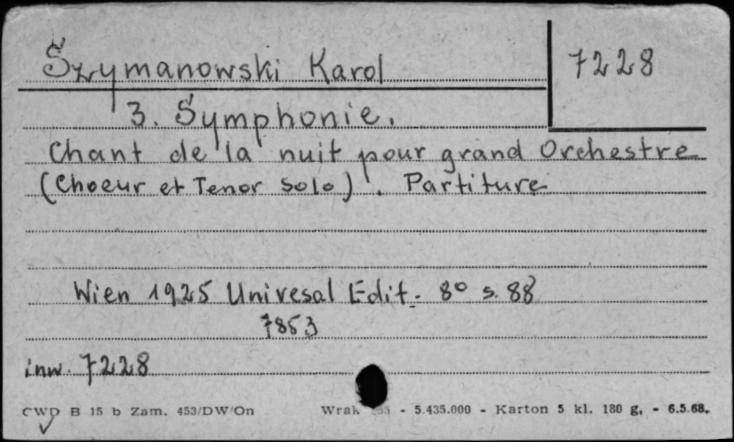 Szymanowski Karol 7228
3. Symphonie.
Chant de la nuit pour grand Orchestre
(Choeur et Tenor solo). Partiture
Wien 1925 Univesal Edit. 8° s. 88
7853
inw. 7228
CWD B 15 b Zam. 453/DW/On Wrak - 5.435.000 - Karton 5 kl. 180 g. - 6.5.68.